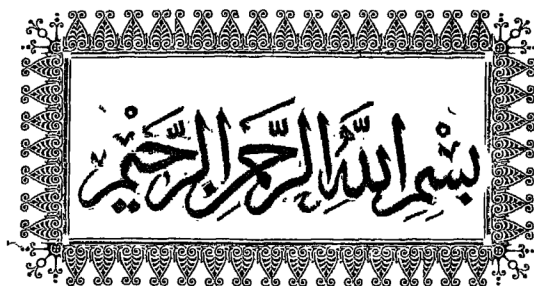 بِسْمِ اللَّهِ الرَّحْمَنِ الرَّحِيْمِ